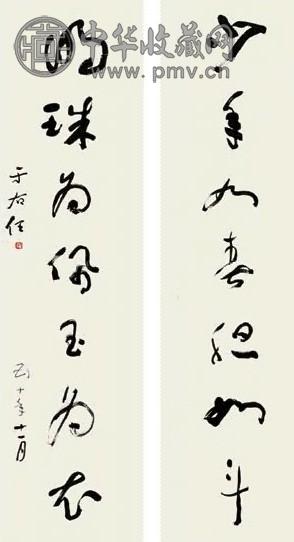 中华收藏网
www.pmv.cn
少年如春胆如斗
明珠为佩玉为衣
于右任
五十年十一月